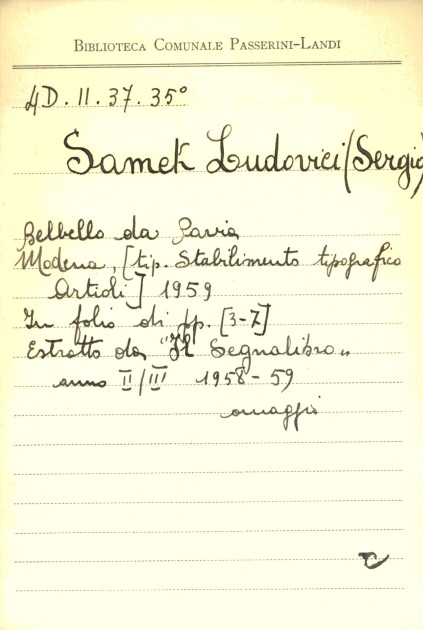 BIBLIOTECA COMUNALE PASSERINI-LANDI
4D.II.37.35°
Samek Ludovici (Sergio)
Belbello da Pavia
Modena, [tip. Stabilimento tipografico
Artioli] 1959
In folio di pp. [3-7]
Estratto da "Il Segnalibro"
anno II/III 1958-59
omaggio